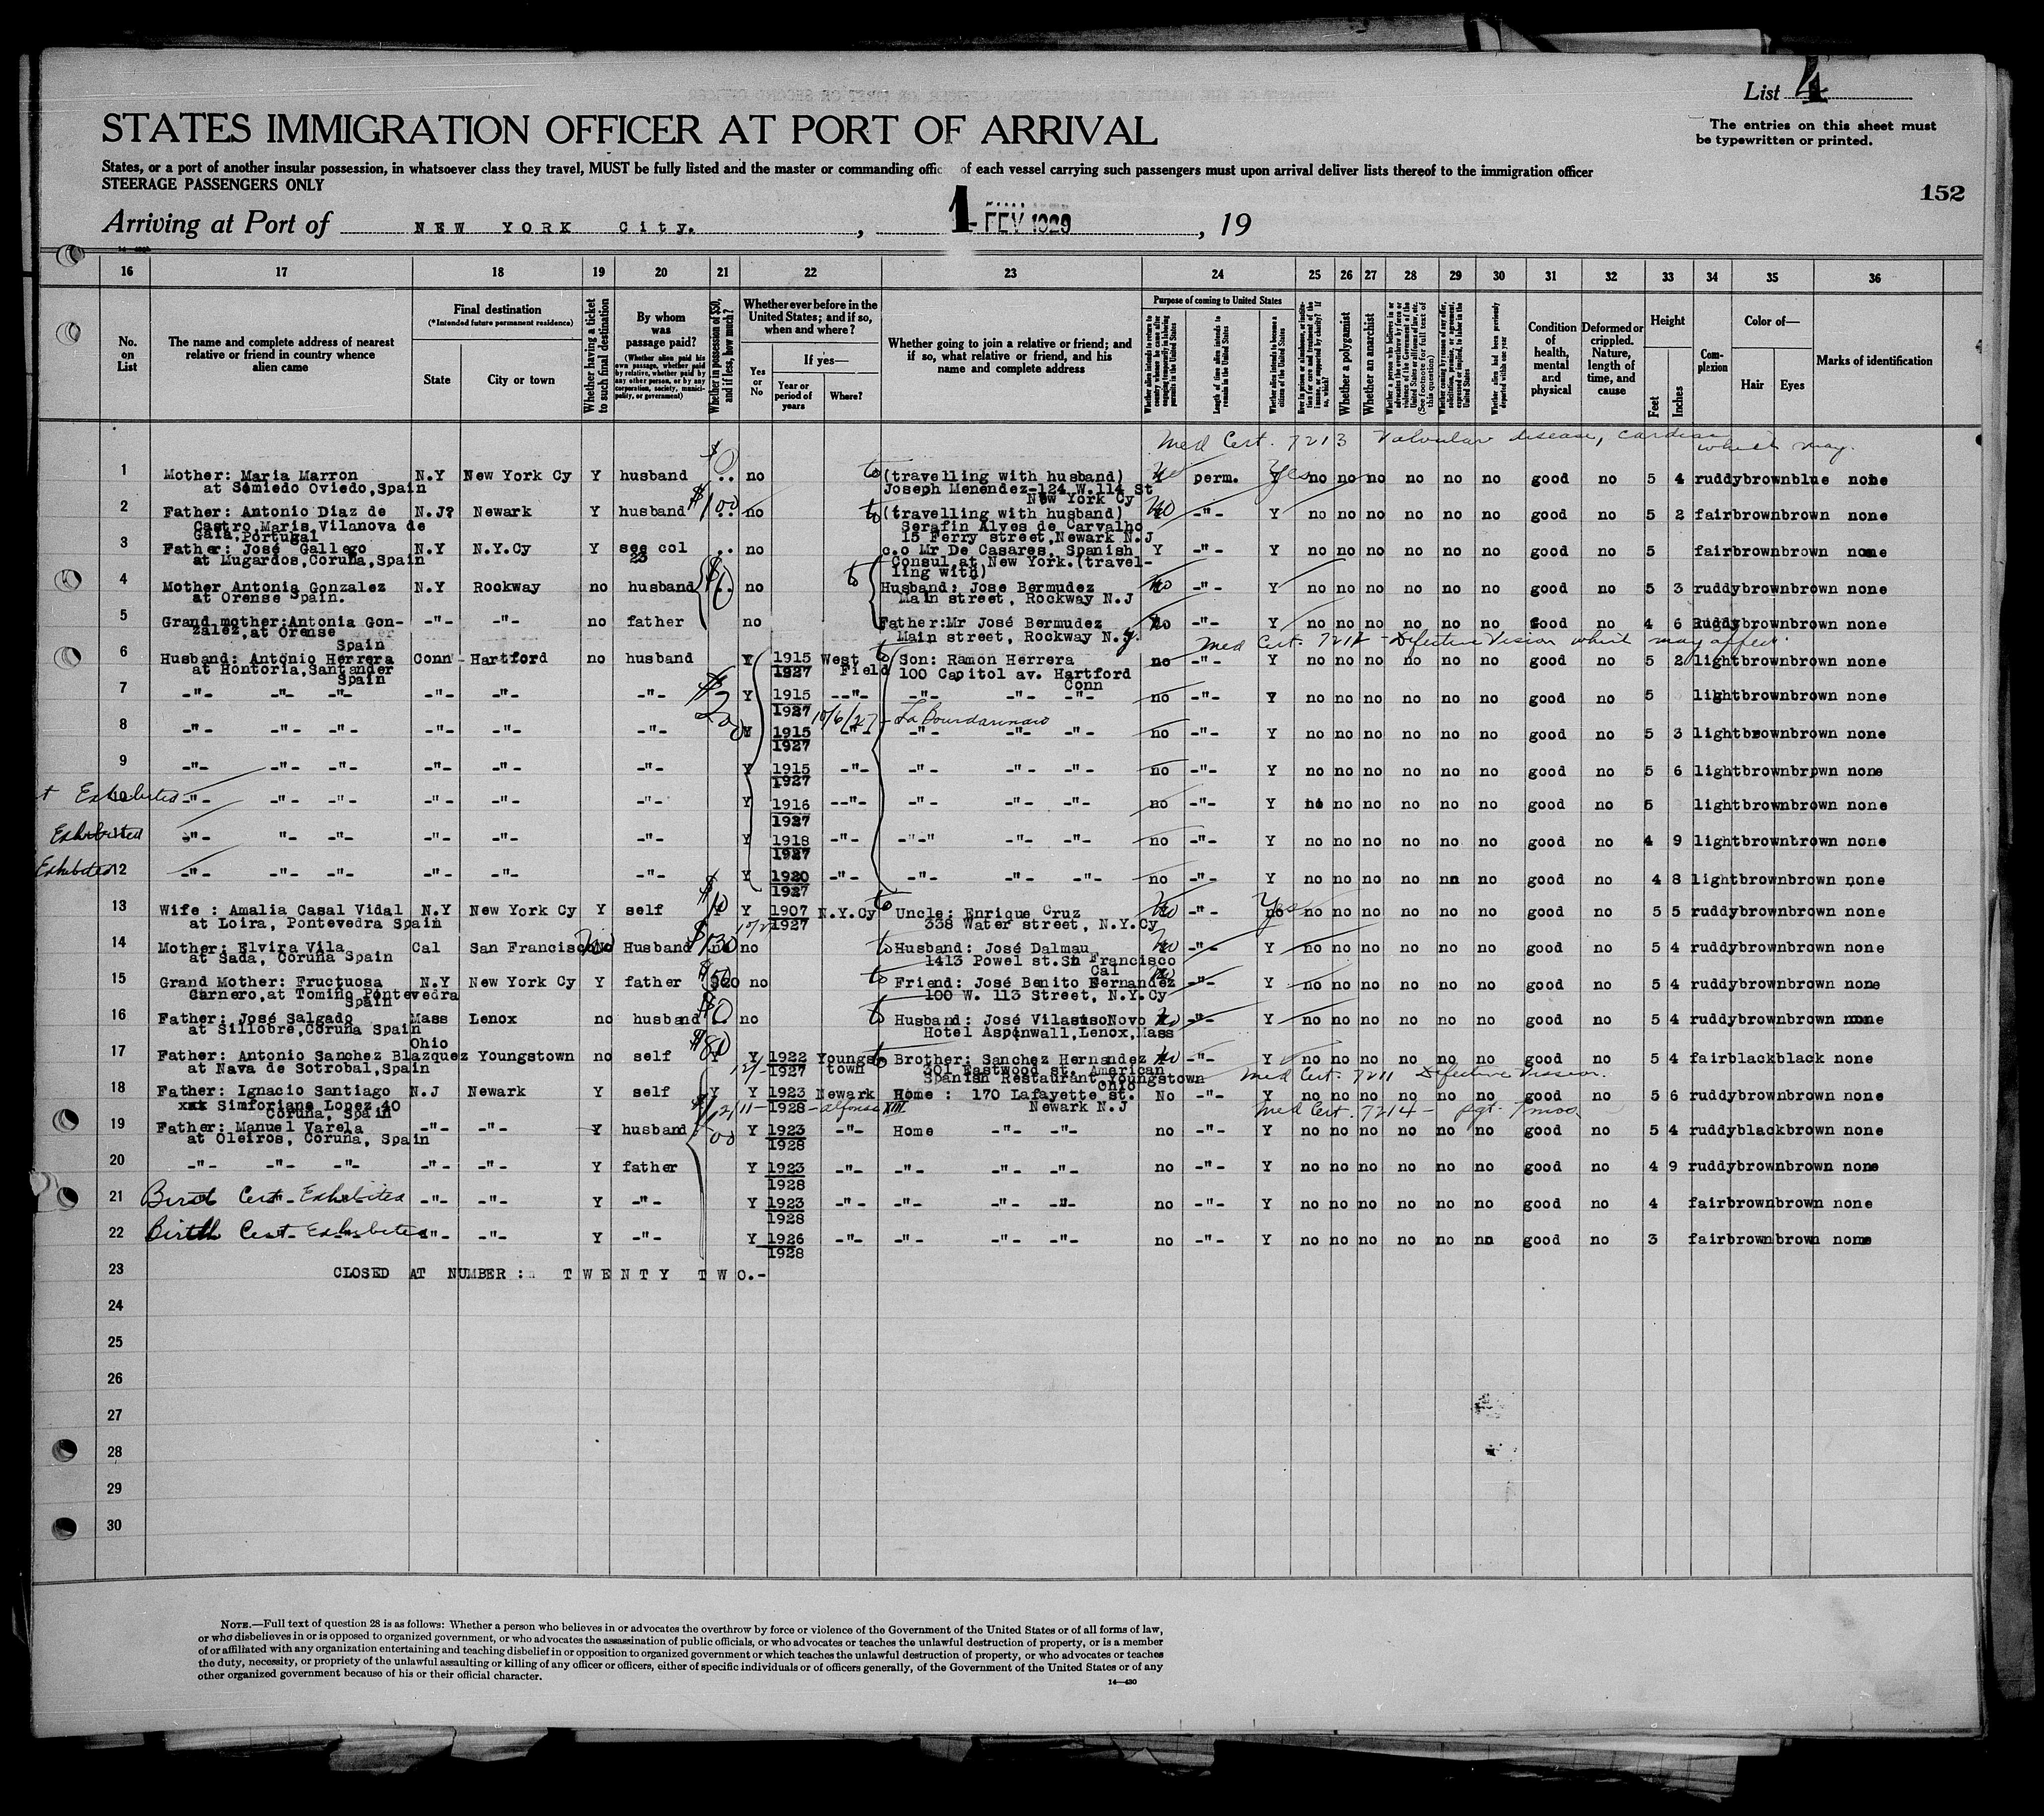 List 4
STATES IMMIGRATION OFFICER AT PORT OF ARRIVAL
The entries on this sheet must
be typewritten or printed.
States, or a port of another insular possession, in whatsoever class they travel, MUST be fully listed and the master or commanding offic of each vessel carrying such passengers must upon arrival deliver lists thereof to the immigration officer
STEERAGE PASSENGERS ONLY
152
Arriving at Port of NEW YORK City. , 1 FEV 1929 , 19
16 17 18 19 20 21 22 23 24 25 26 27 28 29 30 31 32 33 34 35 36
No. on List
The name and complete address of nearest relative or friend in country whence alien came
Final destination
(*Intended future permanent residence)
State
City or town
Whether having a ticket to such final destination
By whom was passage paid?
(Whether alien paid his own passage, whether paid by relative, whether paid by any other person, or by any corporation, society, municipality, or government)
Whether in possession of $50, and if less, how much?
Whether ever before in the United States; and if so, when and where?
Yes or No
If yes—
Year or period of years
Where?
Whether going to join a relative or friend; and if so, what relative or friend, and his name and complete address
Purpose of coming to United States
Whether alien intends to return to country whence he came after engaging temporarily in laboring pursuits in the United States
Length of time alien intends to remain in the United States
Whether alien intends to become a citizen of the United States
Ever in prison or almshouse, or institution for care and treatment of the insane, or supported by charity? If so, which?
Whether a polygamist
Whether an anarchist
Whether a person who believes in or advocates the overthrow by force or violence of the Government of the United States or all forms of law, etc. (See footnote for full text of this question)
Whether coming by reason of any offer, solicitation, promise, or agreement, expressed or implied, to labor in the United States
Whether alien had been previously deported within one year
Condition of health, mental and physical
Deformed or crippled. Nature, length of time, and cause
Height
Feet
Inches
Complexion
Color of—
Hair
Eyes
Marks of identification
Med Cert. 7213 Valvular disease, cardiac which may.
1 Mother: Maria Marron N.Y New York Cy Y husband $0 .. no to (travelling with husband) No perm. Yes no no no no no no good no 5 4 ruddy brown blue none
at Somiedo Oviedo,Spain Joseph Menendez-124 W.114 St
New York Cy
2 Father: Antonio Diaz de N.J? Newark Y husband $100 .. no to (travelling with husband) No -"- Y no no no no no no good no 5 2 fair brown brown none
Castro Maris Vilanova de Serafin Alves de Carvalho
Gaia,Portugal 15 Ferry street,Newark N.J
3 Father: José Gallego N.Y N.Y.Cy Y see col .. no c.o Mr De Casares, Spanish Y -"- Y no no no no no no good no 5 fair brown brown none
at Mugardos,Coruña,Spain 23 Consul,at New York.(travel-
ling with)
4 Mother Antonia Gonzalez N.Y Rockway no husband $0 .. no to Husband: Jose Bermudez No -"- Y no no no no no no good no 5 3 ruddy brown brown none
at Orense Spain. Main street, Rockway N.J
5 Grand mother:Antonia Gon- -"- -"- no father no Father:Mr José Bermudez No -"- Y no no no no no no good no 4 6 Ruddy brown brown none
zalez,at Orense Main street, Rockway N.y.
Spain Med Cert. 7212 - Defective Vision which may affect.
6 Husband: António Herrera Conn Hartford no husband Y 1915 West to Son: Ramon Herrera no -"- Y no no no no no no good no 5 2 light brown brown none
at Hontoria,Santander 1927 Field 100 Capitol av. Hartford
Spain Conn
7 -"- -"- -"- -"- -"- -"- $200 Y 1915 --"- -"- -"- -"- no -"- Y no no no no no no good no 5 light brown brown none
1927 10/6/27 - La Bourdannais
8 -"- -"- -"- -"- -"- -"- Y 1915 -"- -"- -"- -"- no -"- Y no no no no no no good no 5 3 light brown brown none
1927
9 -"- -"- -"- -"- -"- -"- Y 1915 -"- -"- -"- -"- no -"- Y no no no no no no good no 5 6 light brown brpwn none
1927
t Exhibited 10 -"- -"- -"- -"- -"- -"- Y 1916 --"- -"- -"- -"- no -"- Y no no no no no no good no 5 light brown brown none
1927
Exhibited 11 -"- "- -"- -"- -"- -"- Y 1918 -"- -"-" -"- -"- no -"- Y no no no no no no good no 4 9 light brown brown none
1927
Exhibited 12 -"- -"- -"- -"- -"- -"- Y 1920 -"- -"- -"- -"- no -"- Y no no no no no no good no 4 8 light brown brown none
1927
13 Wife : Amalia Casal Vidal N.Y New York Cy Y self $10 Y 1907 N.Y.Cy to Uncle: Enrique Cruz No -"- no Yes no no no no no no good no 5 5 ruddy brown brown none
at Loira, Pontevedra Spain 1927 338 Water street, N.Y.Cy
14 Mother: Elvira Vila Cal San Francisco No Husband $130 no to Husband: José Dalmau No -"- Y no no no no no no good no 5 4 ruddy brown brown none
at Sada, Coruña Spain 1413 Powel st.Sn Francisco
Cal
15 Grand Mother: Fructuosa N.Y New York Cy Y father $50 no to Friend: José Benito Fernandez No -"- Y no no no no no no good no 5 4 ruddy brown brown none
Carnero,at Tomiño Pontevedra 100 W. 113 Street, N.Y.Cy
Spain
16 Father: José Salgado Mass Lenox no husband $0 .. no to Husband: José Vilasuso Novo No -"- Y no no no no no no good no 5 4 ruddy brown brown none
at Sillobre,Coruña Spain Hotel Aspinwall,Lenox,Mass
Ohio
17 Father: Antonio Sanchez Blazquez Youngstown no self $80 Y 1922 Youngs- to Brother: Sanchez Hernandez No -"- Y no no no no no no good no 5 4 fair black black none
at Nava de Sotrobal,Spain 12/- 1927 town 301 Eastwood st. American
Spanish Restaurant Youngstown
Ohio Med Cert. 7211 Defective Vission.
18 Father: Ignacio Santiago N.J Newark Y self Y Y 1923 Newark Home : 170 Lafayette st. No -"- Y no no no no no no good no 5 6 ruddy brown brown none
xxx Simforiano Lopez 40 11- 1928 - alfonso XIII Newark N.J
Coruña, Spain Med Cert. 7214 -
19 Father: Manuel Varela -"- -"- Y husband $1200 Y 1923 -"- Home -"- -"- no -"- Y no no no no no no good no 5 4 ruddy black brown none
at Oleiros, Coruña, Spain 1928
20 -"- -"- -"- -"- -"- Y father Y 1923 -"- -"- -"- -"- no -"- Y no no no no no no good no 4 9 ruddy brown brown none
1928
21 Birth Cert- Exhibited -"- -"- Y -"- Y 1923 -"- -"- -"- -"- no -"- Y no no no no no no good no 4 fair brown brown none
1928
22 Birth Cert- Exhibited -"- -"- Y -"- Y 1926 -"- -"- -"- -"- no -"- Y no no no no no no good no 3 fair brown brown none
1928
23 CLOSED AT NUMBER : TWENTY TWO.-
24
25
26
27
28
29
30
NOTE.—Full text of question 28 is as follows: Whether a person who believes in or advocates the overthrow by force or violence of the Government of the United States or of all forms of law,
or who disbelieves in or is opposed to organized government, or who advocates the assassination of public officials, or who advocates or teaches the unlawful destruction of property, or is a member
of or affiliated with any organization entertaining and teaching disbelief in or opposition to organized government or which teaches the unlawful destruction of property, or who advocates or teaches
the duty, necessity, or propriety of the unlawful assaulting or killing of any officer or officers, either of specific individuals or of officers generally, of the Government of the United States or of any
other organized government because of his or their official character.
14—430